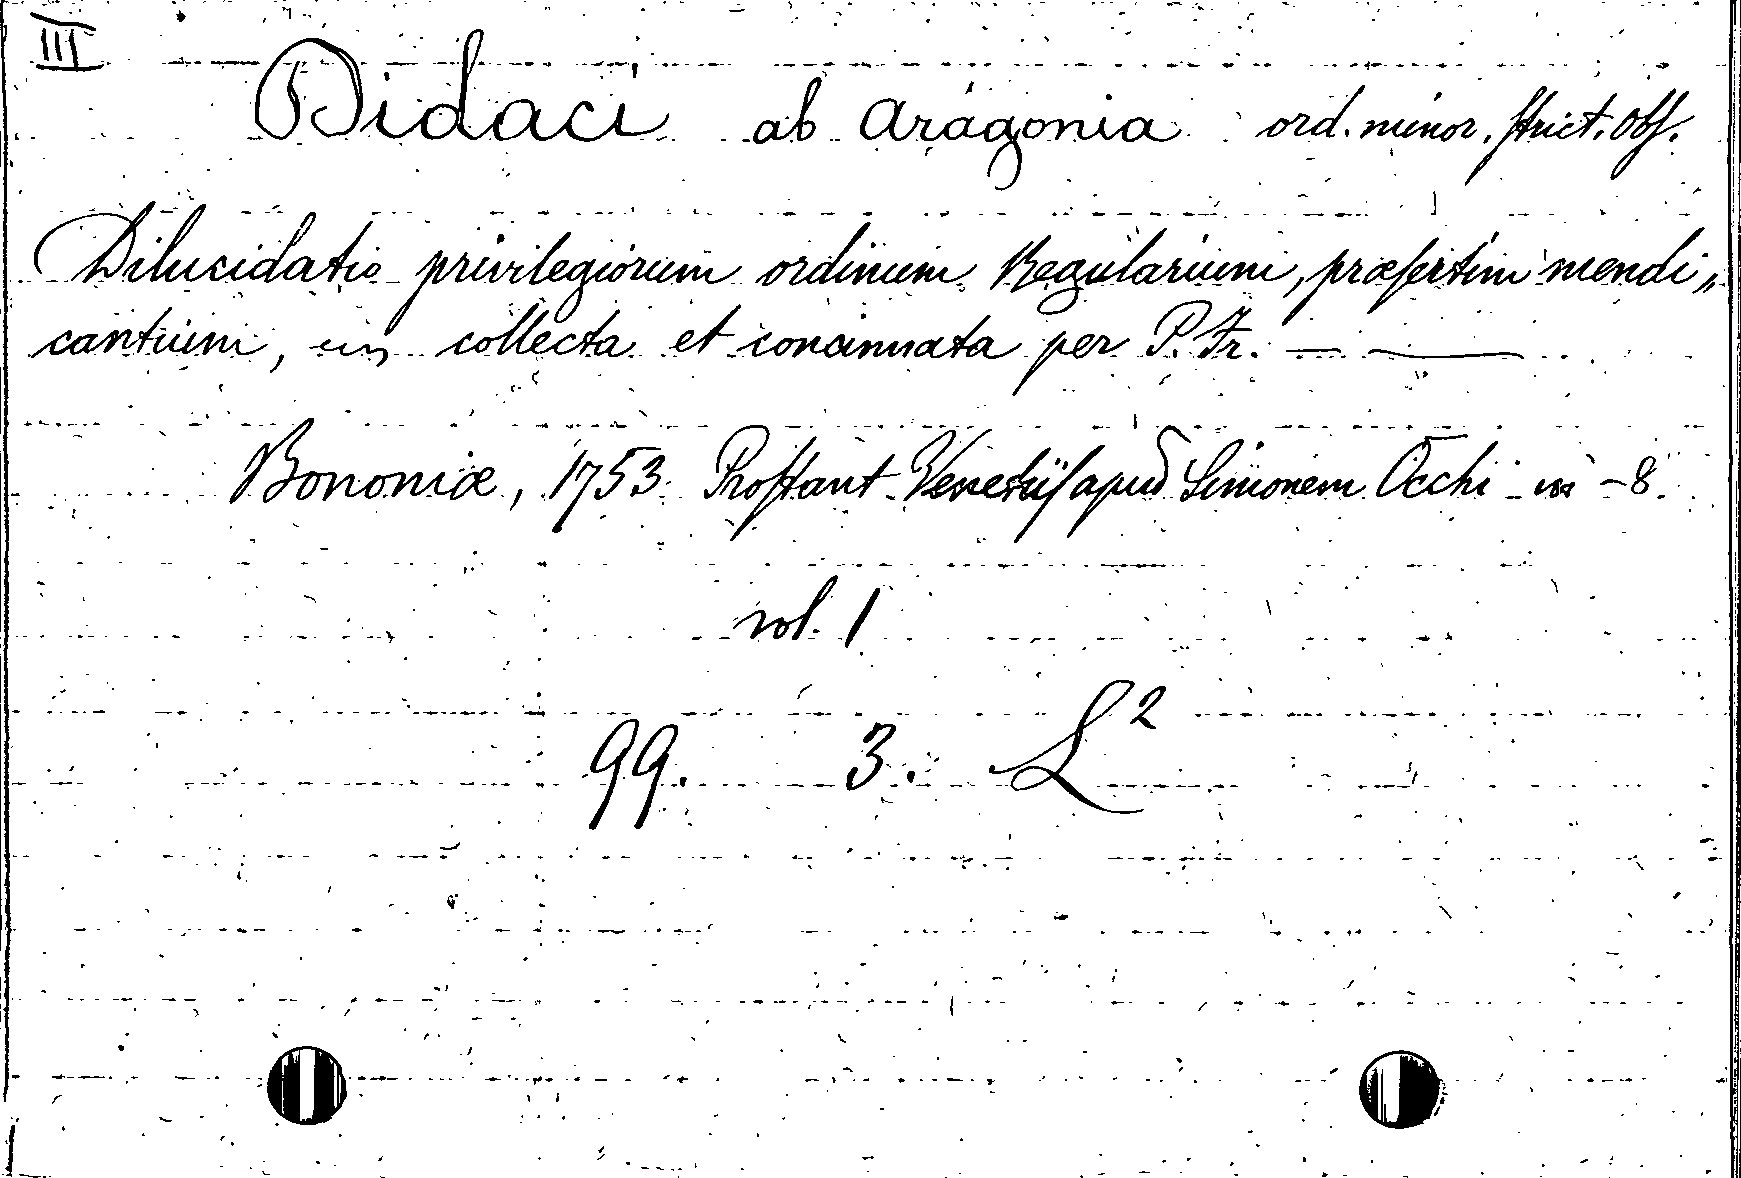 III
Didaci ab Aragonia ord. minor. strict. obs.
Dilucidatio privilegiorum ordinum Regularium, præsertim mendi„
cantium, collecta et concinnata per P. Fr. — ——
Bononiæ, 1753. Prostant Venetiis apud Simonem Occhi in -8.
vol. 1
99. 3. L²